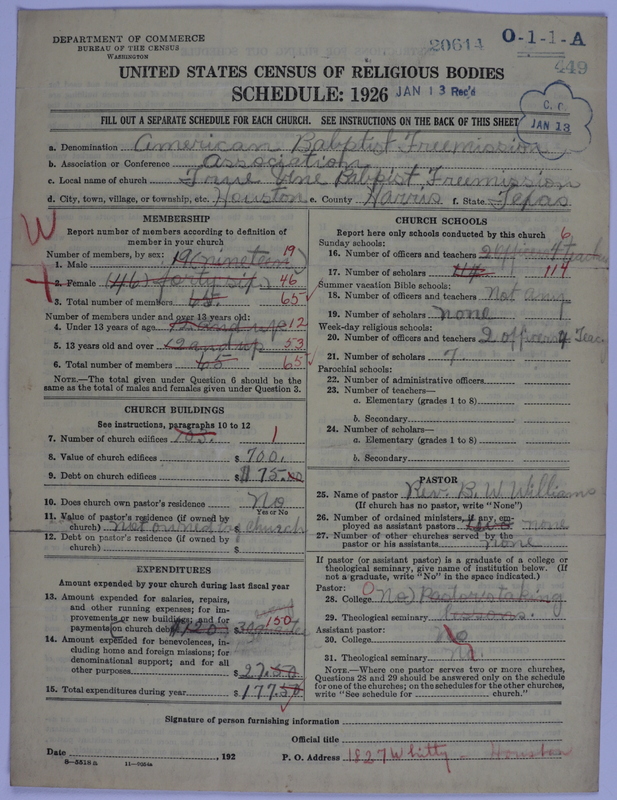 DEPARTMENT OF COMMERCE
BUREAU OF THE CENSUS
WASHINGTON
20614 O-1-1-A
449
UNITED STATES CENSUS OF RELIGIOUS BODIES
SCHEDULE: 1926 JAN 13 Rec'd
FILL OUT A SEPARATE SCHEDULE FOR EACH CHURCH. SEE INSTRUCTIONS ON THE BACK OF THIS SHEET
JAN 13
a. Denomination American Babptist Freemission
b. Association or Conference Association
c. Local name of church True Vine Babpist Freemission
d. City, town, village, or township, etc. Houston e. County Harris f. State Texas
W
MEMBERSHIP
Report number of members according to definition of
member in your church
Number of members, by sex:
1. Male 19 (nineteen) 19
2. Female (46) forty six 46
3. Total number of members 65 65
Number of members under and over 13 years old:
4. Under 13 years of age 12 and up 12
5. 13 years old and over 12 and up 53
6. Total number of members 65 65
NOTE.—The total given under Question 6 should be the
same as the total of males and females given under Question 3.
CHURCH BUILDINGS
See instructions, paragraphs 10 to 12
7. Number of church edifices 1
8. Value of church edifices $ 700.
9. Debt on church edifices $ 175.00
10. Does church own pastor's residence No
Yes or No
11. Value of pastor's residence (if owned by
church) not owned by church $
12. Debt on pastor's residence (if owned by
church) $
EXPENDITURES
Amount expended by your church during last fiscal year
13. Amount expended for salaries, repairs,
and other running expenses; for im-
provements or new buildings; and for
payments on church debt $120 150
14. Amount expended for benevolences, in-
cluding home and foreign missions; for
denominational support; and for all
other purposes $ 27.50
15. Total expenditures during year $ 177.50
CHURCH SCHOOLS
Report here only schools conducted by this church 6
Sunday schools:
16. Number of officers and teachers 2 officers 4 teachers
17. Number of scholars 114 114
Summer vacation Bible schools:
18. Number of officers and teachers Not any
19. Number of scholars none
Week-day religious schools:
20. Number of officers and teachers 2 officers 4 Teac
21. Number of scholars 7
Parochial schools:
22. Number of administrative officers
23. Number of teachers—
a. Elementary (grades 1 to 8)
b. Secondary
24. Number of scholars—
a. Elementary (grades 1 to 8)
b. Secondary
PASTOR
25. Name of pastor Rev. B. W Williams
(If church has no pastor, write "None")
26. Number of ordained ministers, if any, em-
ployed as assistant pastors none
27. Number of other churches served by the
pastor or his assistants none
If pastor (or assistant pastor) is a graduate of a college or
theological seminary, give name of institution below. (If
not a graduate, write "No" in the space indicated.)
Pastor:
28. College No) Pastor is taking
29. Theological seminary lessons.
Assistant pastor:
30. College No
31. Theological seminary
NOTE.—Where one pastor serves two or more churches,
Questions 28 and 29 should be answered only on the schedule
for one of the churches; on the schedules for the other churches,
write "See schedule for church."
Signature of person furnishing information
Official title
Date , 192 P. O. Address 1827 Whitty - Houston
8-5518a 11-9054a